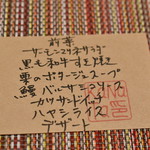 前菜
サーモンマリネサラダ
黒毛和牛すき焼き
栗のポタージュスープ
鰻 バルサミコソース
カツサンドイッチ
ハヤシライス
デザート